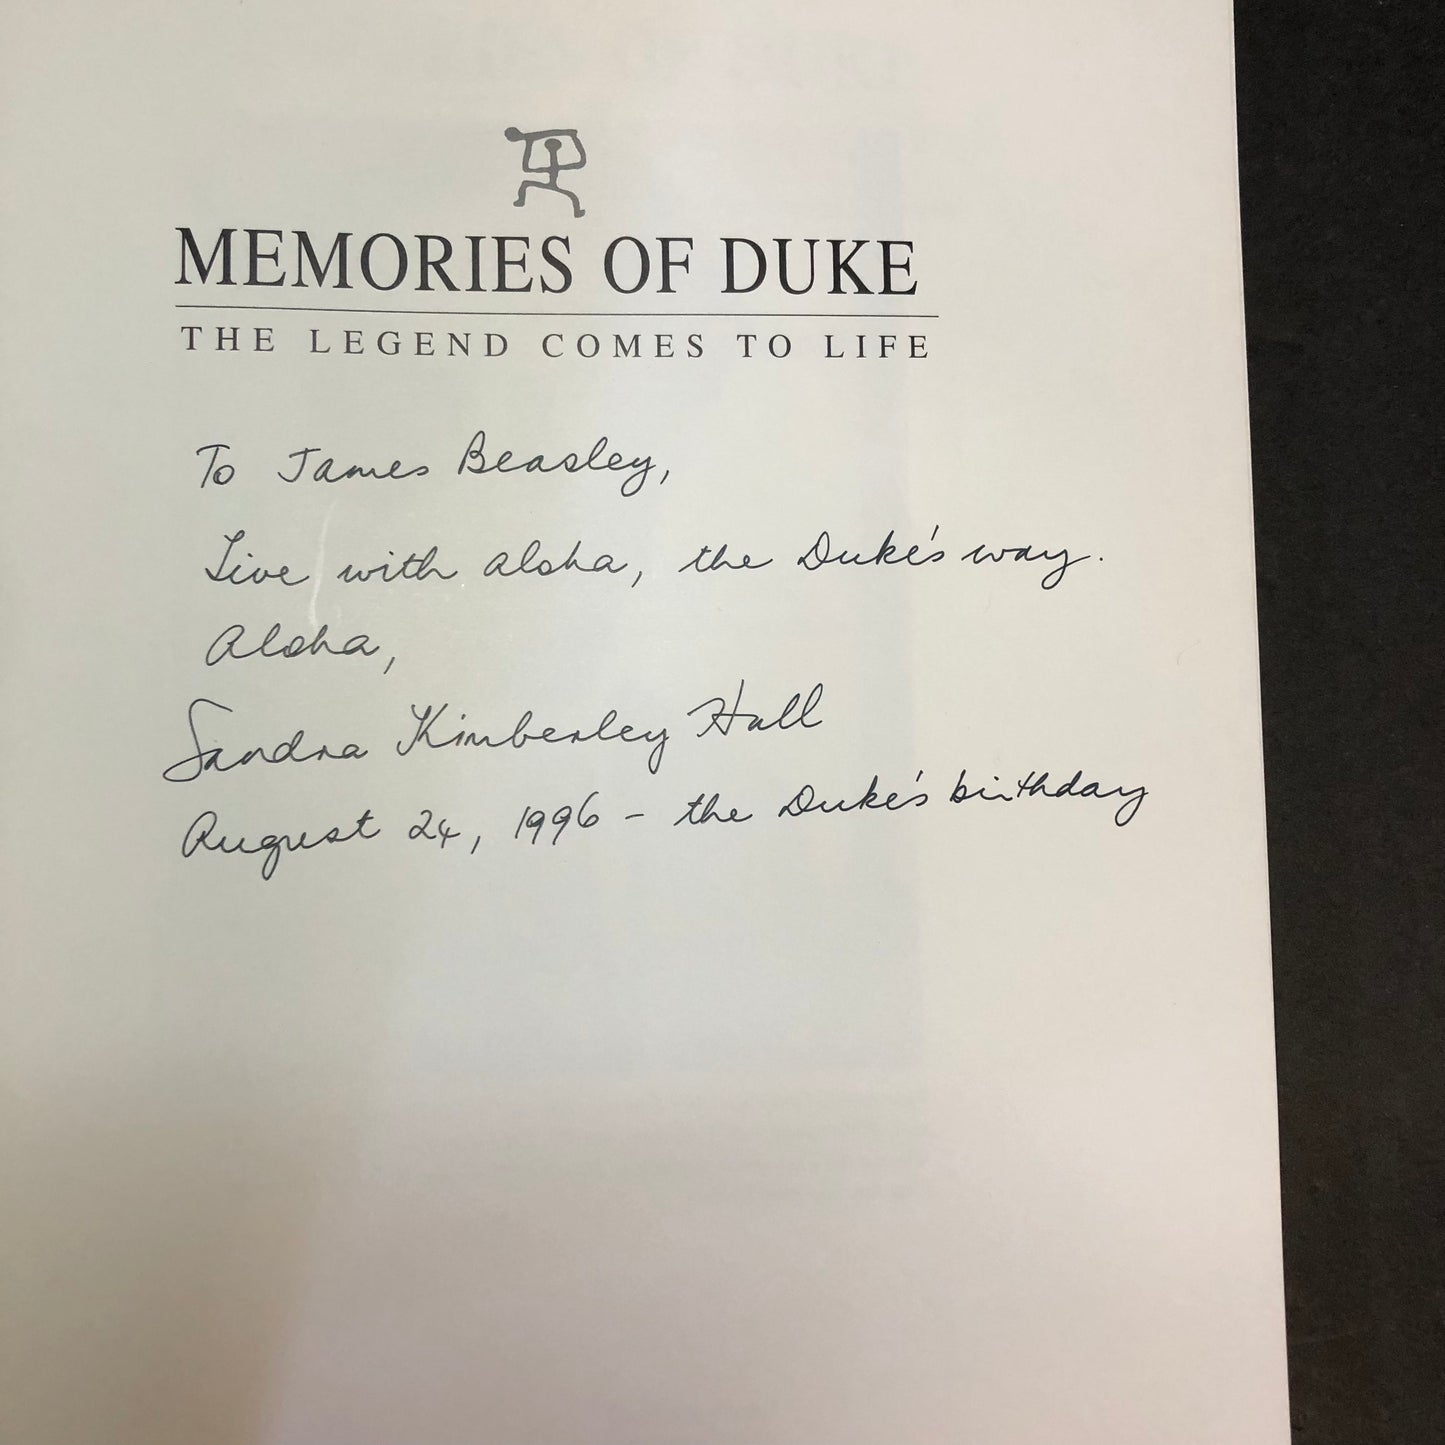 MEMORIES OF DUKE
THE LEGEND COMES TO LIFE
To James Beasley,
Live with aloha, the Duke's way.
Aloha,
Sandra Kimberley Hall
August 24, 1996 - the Duke's birthday